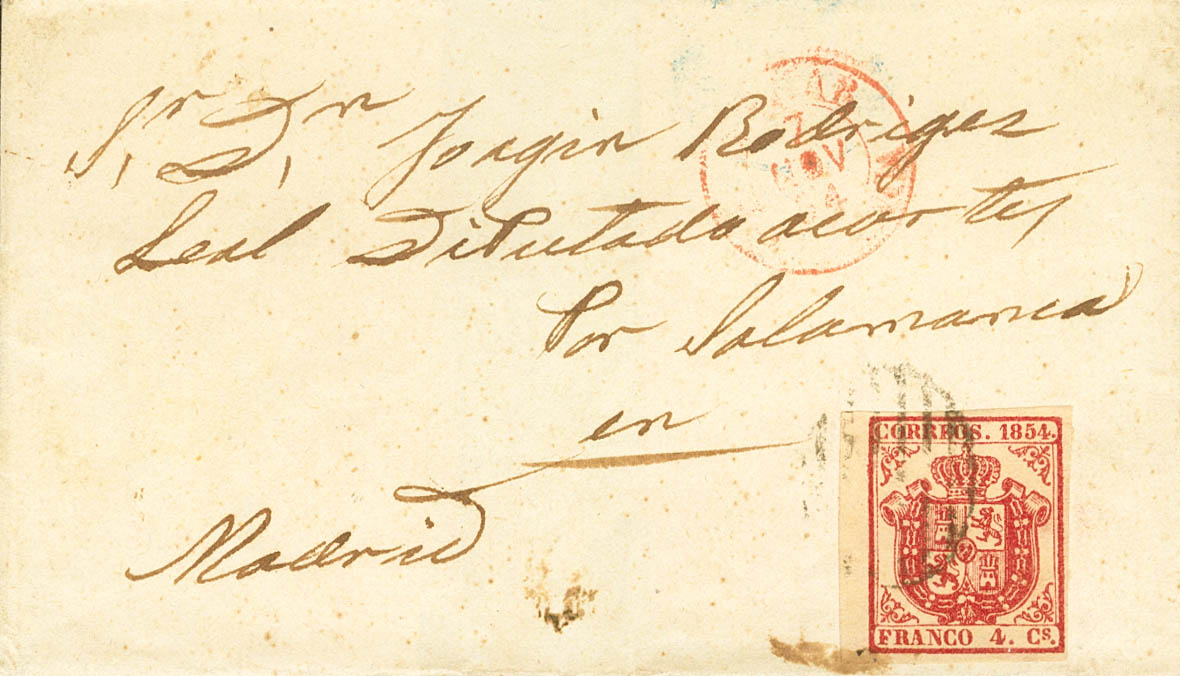 Sr. Dn. Joaqin Rodrigez
Leal Diputado acortes
Por Salamanca
en
Madrid
7
NOV
CORREOS. 1854.
FRANCO 4. Cs.